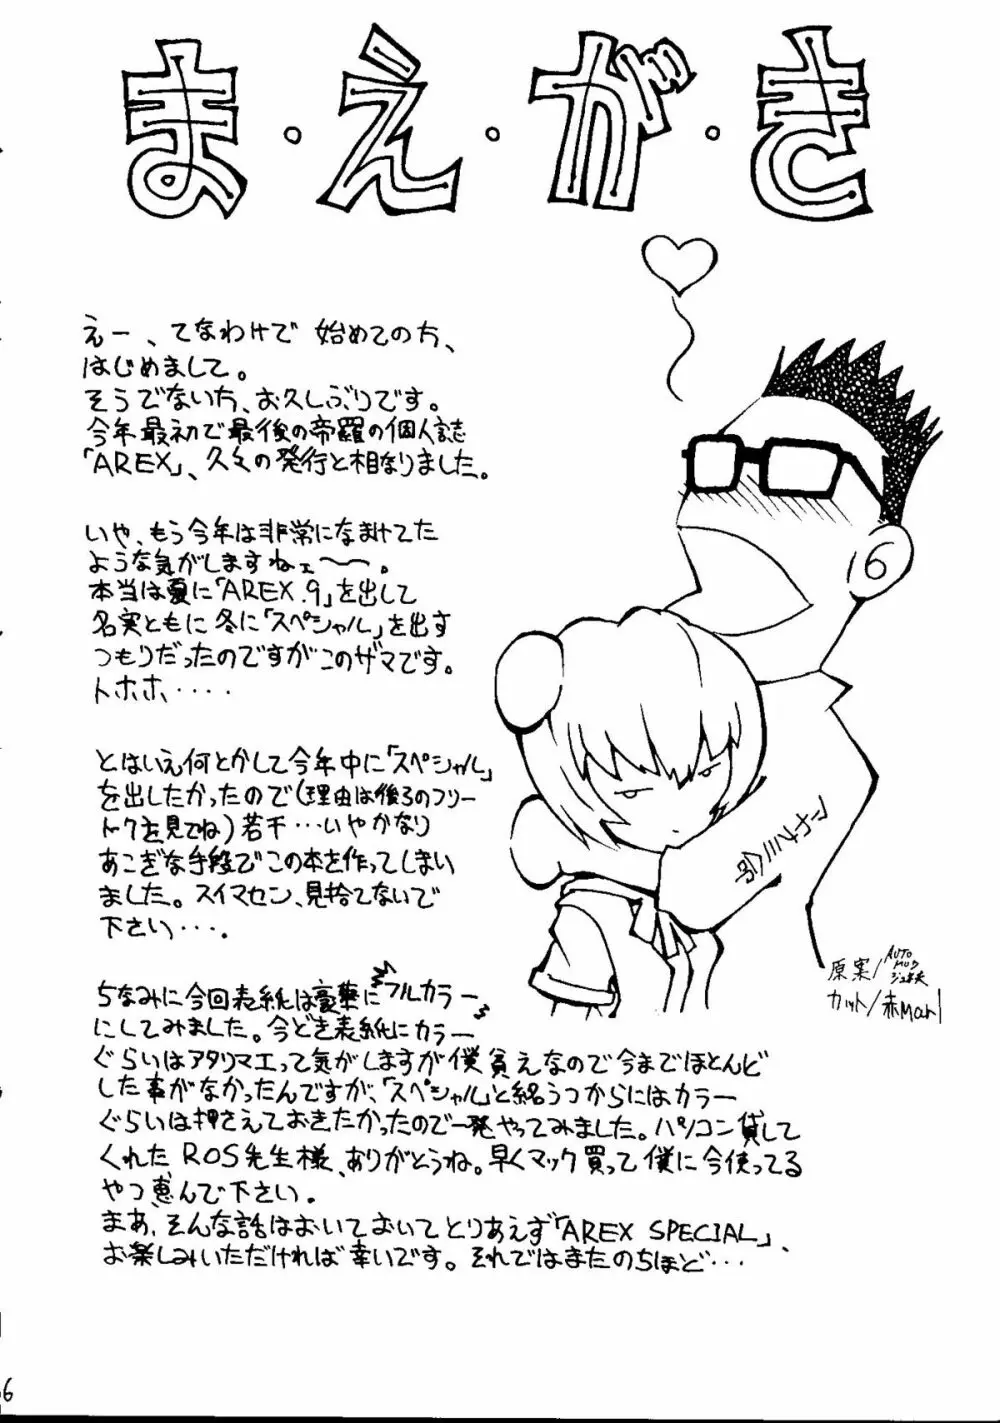 ま・え・が・き
えー、てなわけで 始めてのち、
はじめまして。
そうでないち、お久しぶりです。
今年最初で最後の帝羅の個人誌
「AREX」、久々の発行と相なりました。
いや、もう今年は非常になまけてた
ような気がしますねェ〜〜。
本当は夏に「AREX.9」を出して
名実ともに冬に「スペシャル」を出す
つもりだったのですがこのザマです。
トホホ、・・・・
とはいえ何とかして今年中に「スペシャル」
を出したかったので(理由は後ろのフリー
トークを見てね)若干・・・いやかなり
あこぎな手段でこの本を作ってしまい
ました。スイマセン、見捨てないで
下さい・・・。
ちなみに今回表紙は豪華にフルカラー
にしてみました。今どき表紙にカラー
ぐらいはアタリマエって気がしますが僕貧えなので今までほとんど
した事がなかったんですが、「スペシャル」と銘うつからにはカラー
ぐらいは押さえておきたかったので一発やってみました。パソコン貸して
くれたROS先生様、ありがとうね。早くマック買って僕に今使ってる
やつ恵んで下さい。
まあ、そんな話はおいておいてとりあえず「AREX SPECIAL」、
お楽しみいただければ幸いです。それではまたのちほど・・・
原案/AUTO
カット/赤Marl
6